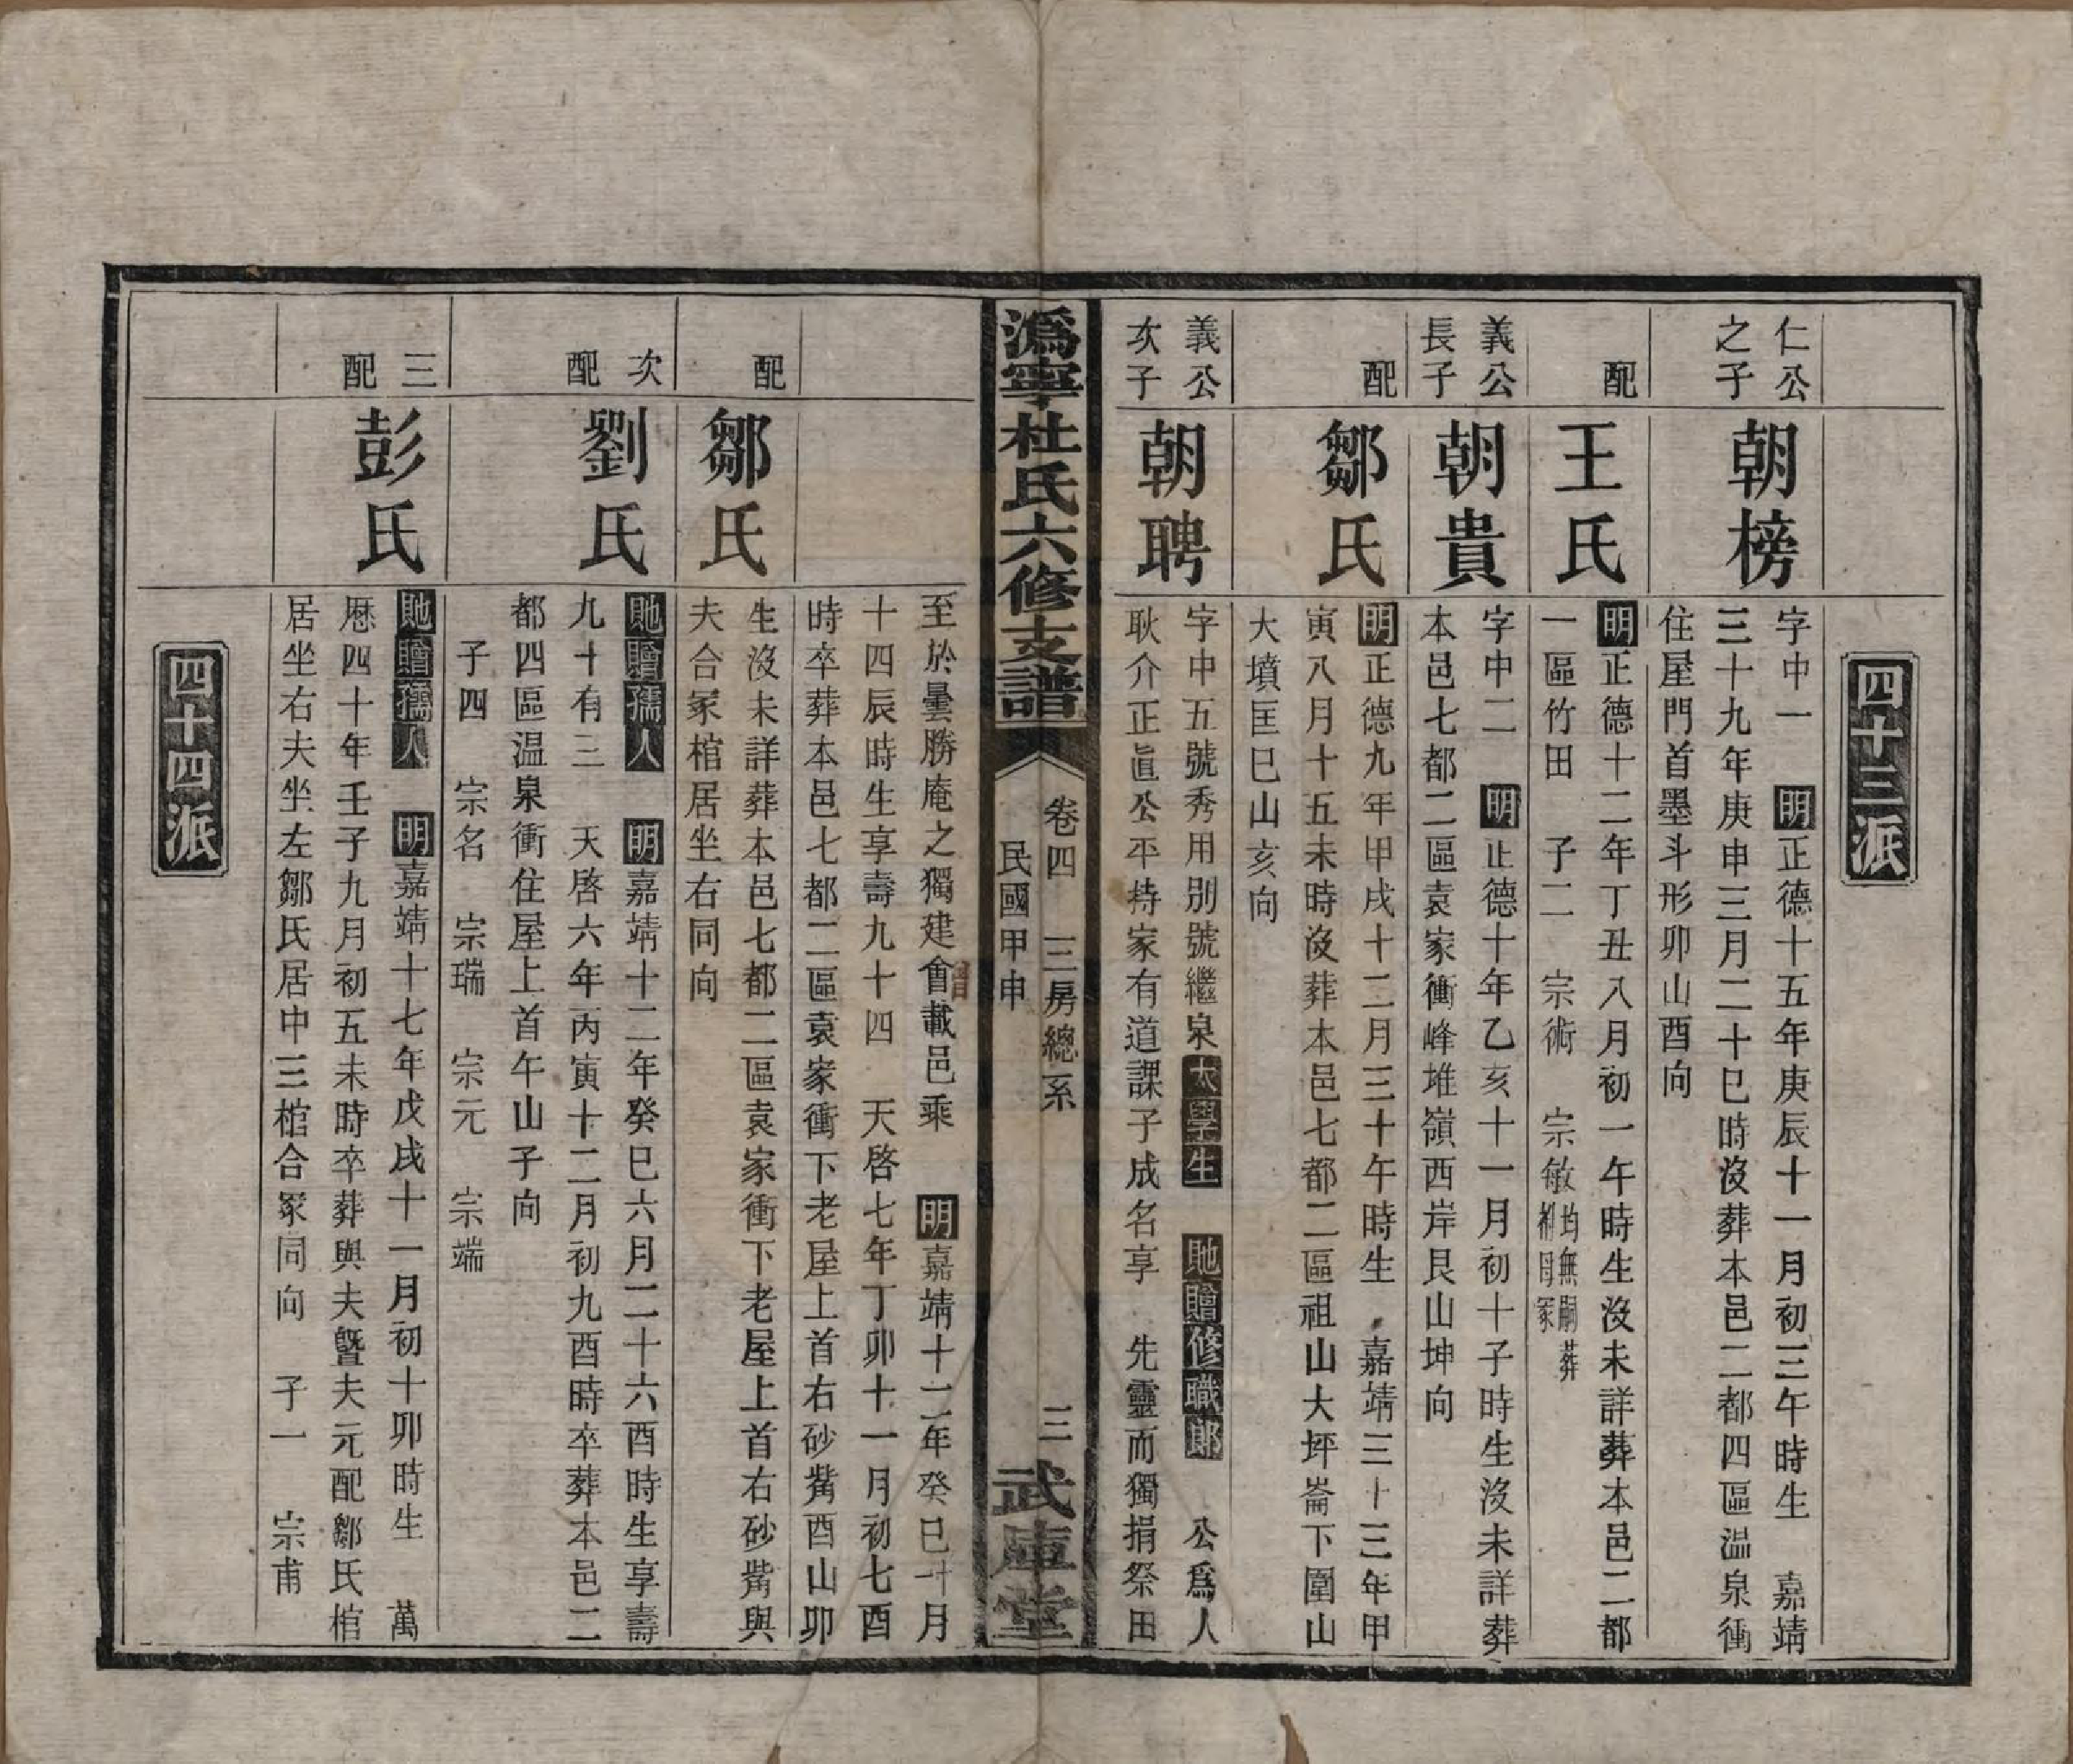 四十三派
仁公
之子
朝榜
字中一　明正德十五年庚辰十一月初三午時生　嘉靖
三十九年庚申三月二十巳時沒葬本邑二都四區温泉衝
住屋門首墨斗形卯山酉向
配
王氏
明正德十二年丁丑八月初一午時生沒未詳葬本邑二都
一區竹田　子二　宗術　宗敏均無嗣葬祔母冢
義公
長子
朝貴
字中二　明正德十年乙亥十一月初十子時生沒未詳葬
本邑七都二區袁家衝峰堆嶺西岸艮山坤向
配
鄒氏
明正德九年甲戌十二月三十午時生　嘉靖三十三年甲
寅八月十五未時沒葬本邑七都二區祖山大坪崙下圍山
大墳匡巳山亥向
義公
次子
朝聘
字中五號秀用別號繼泉太學生　貤贈修職郎　公爲人
耿介正眞公平持家有道課子成名享　先靈而獨捐祭田
潙寧杜氏六修支譜
卷四　三房總系　三
民國甲申
武庫堂
至於曇勝庵之獨建會載邑乘　明嘉靖十二年癸巳十月
十四辰時生享壽九十四　天啓七年丁卯十一月初七酉
時卒葬本邑七都二區袁家衝下老屋上首右砂觜酉山卯
配
鄒氏
生沒未詳葬本邑七都二區袁家衝下老屋上首右砂觜與
夫合冢棺居坐右同向
次
配
劉氏
貤贈孺人　明嘉靖十二年癸巳六月二十六酉時生享壽
九十有三　天啓六年丙寅十二月初九酉時卒葬本邑二
都四區温泉衝住屋上首午山子向
子四　宗名　宗瑞　宗元　宗端
三
配
彭氏
貤贈孺人　明嘉靖十七年戊戌十一月初十卯時生　萬
歷四十年壬子九月初五未時卒葬與夫曁夫元配鄒氏棺
居坐右夫坐左鄒氏居中三棺合冢同向　子一　宗甫
四十四派